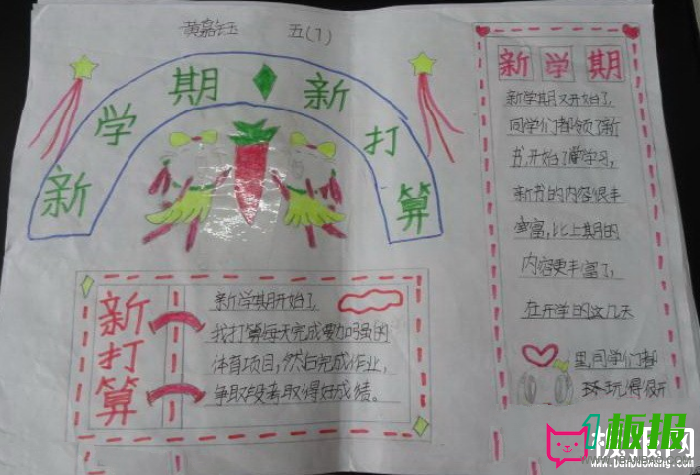 黄嘉钰 五(1)
新学期新打算
新打算
新学期开始了,
我打算每天完成要加强的
体育项目,然后完成作业,
争取段考取得好成绩。
新学期
新学期又开始了,
同学们都领了新
书,开始了学习,
新书的内容很丰
盛富,比上期的
内容更丰富了,
在开学的这几天
里同学们都
环玩得很开
1板报网